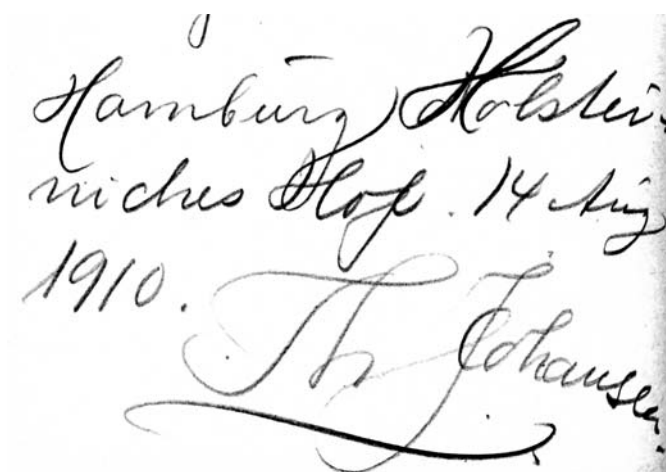 Hamburg, Holstei-
niches Hof. 14 Aug
1910.
Th Johansen.